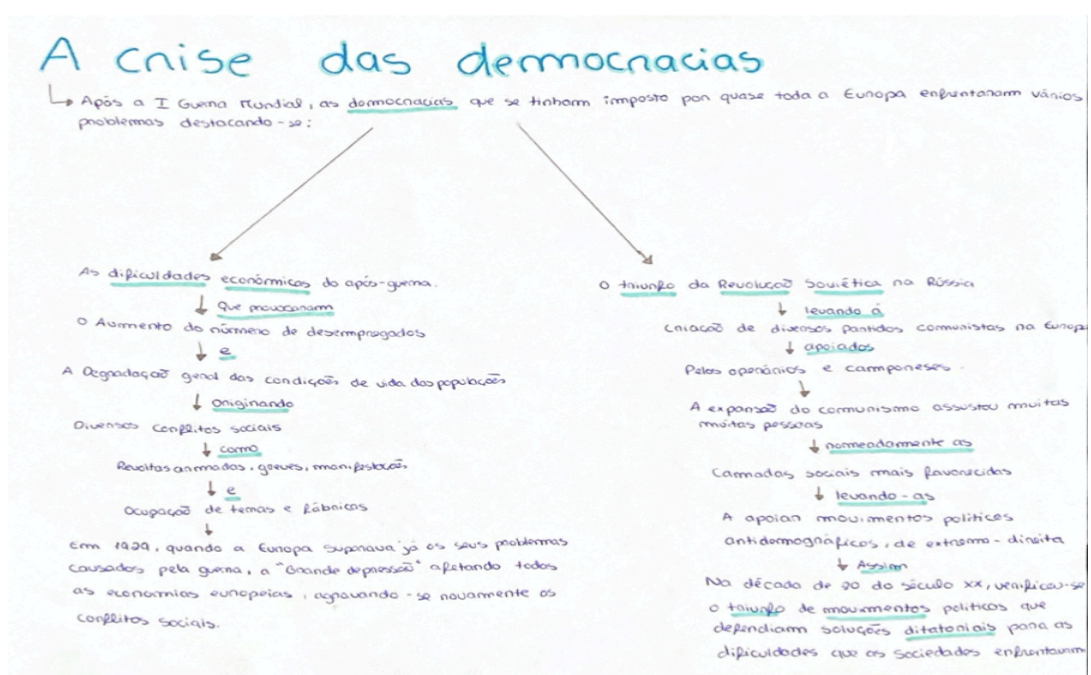 A crise das democracias
↳ Após a I Guerra Mundial, as democracias que se tinham imposto por quase toda a Europa enfrentaram vários
problemas destacando-se:
As dificuldades económicas do após-guerra.
↓ que provocaram
O Aumento do número de desempregados
↓ e
A Degradação geral das condições de vida das populações
↓ originando
Diversos conflitos sociais
↓ como
Revoltas armadas, greves, manifestações
↓ e
Ocupação de terras e fábricas
↓
Em 1929, quando a Europa superava já os seus problemas
causados pela guerra, a "Grande depressão" afetando todas
as economias europeias, agravando-se novamente os
conflitos sociais.
O triunfo da Revolução Soviética na Rússia
↓ levando á
Criação de diversos partidos comunistas na Europa
↓ apoiados
Pelos operários e camponeses.
↓
A expansão do comunismo assustou muitas
muitas pessoas
↓ nomeadamente as
Camadas sociais mais favorecidas
↓ levando-as
A apoiar movimentos políticos
antidemográficos, de extrema-direita
↓ Assim
Na década de 20 do século XX, verificou-se
o triunfo de movimentos políticos que
defendiam soluções ditatoriais para as
dificuldades que as sociedades enfrentavam